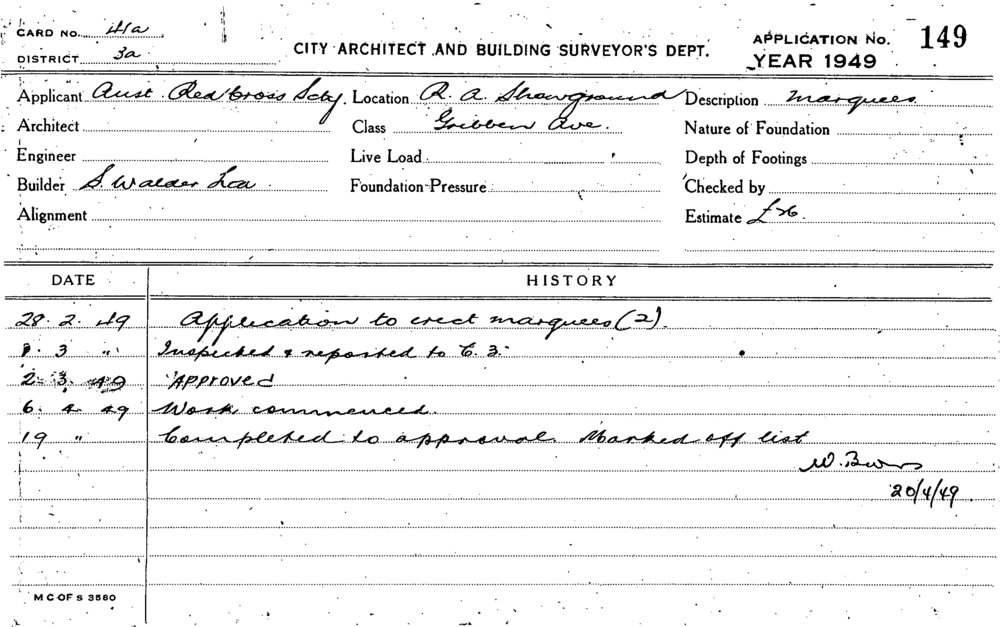 CARD NO. 41a
DISTRICT 3a
CITY ARCHITECT AND BUILDING SURVEYOR'S DEPT.
APPLICATION NO. 149
YEAR 1949
Applicant Aust. Red Cross Scty. Location R. A. Showground Description Marquees.
Architect Class Gribben Ave. Nature of Foundation
Engineer Live Load Depth of Footings
Builder S. Walder Foundation Pressure Checked by
Alignment Estimate £
DATE HISTORY
28. 2. 49 Application to erect marquees (2).
1. 3 " Inspected & reported to
2. 3. 49 Approved
6. 4 49 Work commenced.
19 " Completed to approval. Marked off list
20/4/49.
M C OF S 3580